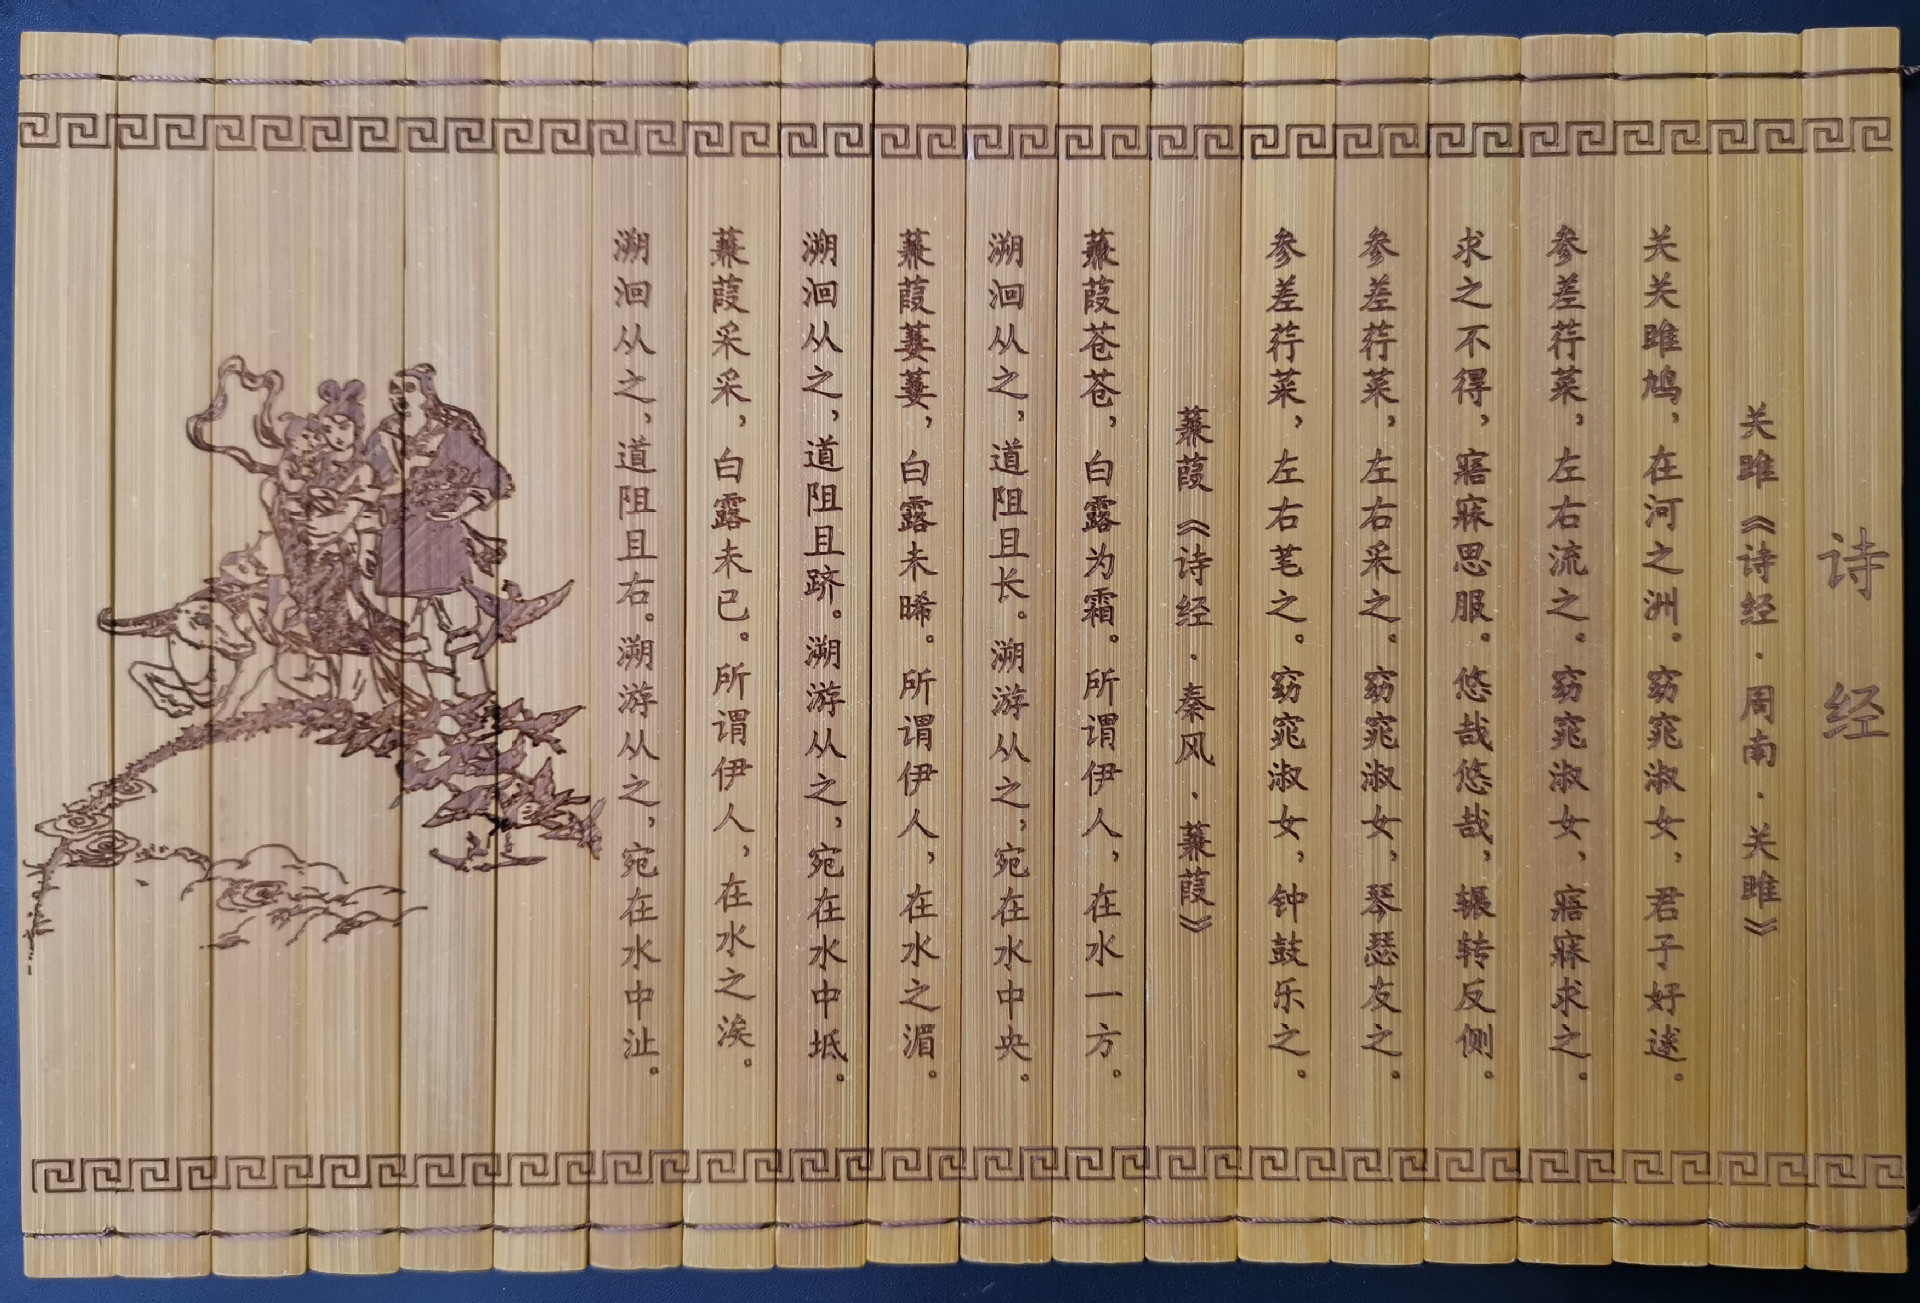 诗经
关雎《诗经·周南·关雎》
关关雎鸠，在河之洲。窈窕淑女，君子好逑。
参差荇菜，左右流之。窈窕淑女，寤寐求之。
求之不得，寤寐思服。悠哉悠哉，辗转反侧。
参差荇菜，左右采之。窈窕淑女，琴瑟友之。
参差荇菜，左右芼之。窈窕淑女，钟鼓乐之。
蒹葭《诗经·秦风·蒹葭》
蒹葭苍苍，白露为霜。所谓伊人，在水一方。
溯洄从之，道阻且长。溯游从之，宛在水中央。
蒹葭萋萋，白露未晞。所谓伊人，在水之湄。
溯洄从之，道阻且跻。溯游从之，宛在水中坻。
蒹葭采采，白露未已。所谓伊人，在水之涘。
溯洄从之，道阻且右。溯游从之，宛在水中沚。